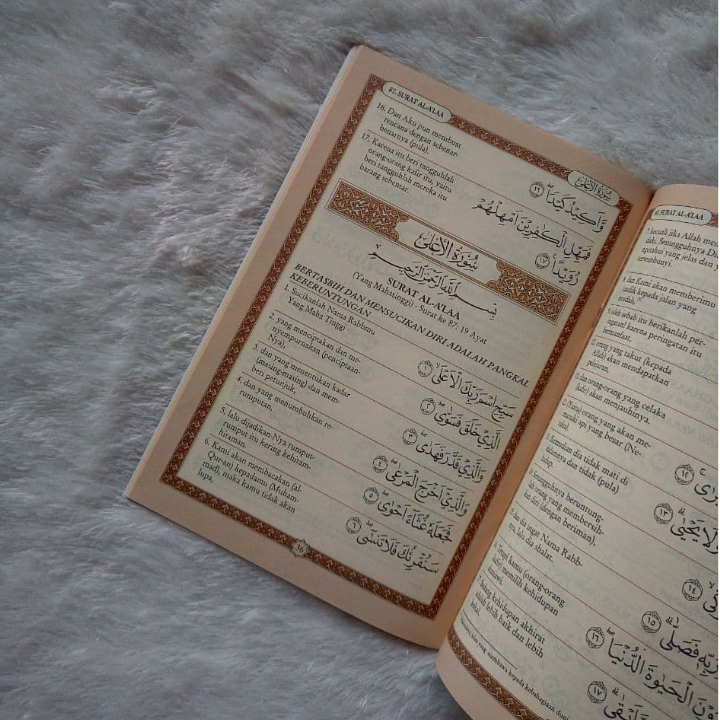 87. SURAT AL-A'LAA
سُورَةُ الْأَعْلَىٰ
16. Dan Aku pun membuat
rencana dengan sebenar-
benarnya (pula).
وَأَكِيدُ كَيْدًا ۝١٦
17. Karena itu beri tangguhlah
orang-orang kafir itu, yaitu
beri tangguhlah mereka itu
barang sebentar.
فَمَهِّلِ الْكَافِرِينَ أَمْهِلْهُمْ
رُوَيْدًا ۝١٧
سُورَةُ الْأَعْلَىٰ
بِسْمِ اللَّهِ الرَّحْمَٰنِ الرَّحِيمِ
SURAT AL-A'LAA
(Yang Mahatinggi) - Surat ke 87: 19 Ayat
BERTASBIH DAN MENSUCIKAN DIRI ADALAH PANGKAL
KEBERUNTUNGAN
1. Sucikanlah Nama Rabbmu
Yang Maha Tinggi
سَبِّحِ اسْمَ رَبِّكَ الْأَعْلَى ۝١
2. yang menciptakan dan me-
nyempurnakan (penciptaan-
Nya),
الَّذِي خَلَقَ فَسَوَّىٰ ۝٢
3. dan yang menentukan kadar
(masing-masing) dan mem-
beri petunjuk,
وَالَّذِي قَدَّرَ فَهَدَىٰ ۝٣
4. dan yang menumbuhkan re-
rumputan,
وَالَّذِي أَخْرَجَ الْمَرْعَىٰ ۝٤
5. lalu dijadikan-Nya rumput-
rumput itu kering kehitam-
hitaman.
فَجَعَلَهُ غُثَاءً أَحْوَىٰ ۝٥
6. Kami akan membacakan (al-
Quran) kepadamu (Muham-
mad), maka kamu tidak akan
lupa,
سَنُقْرِئُكَ فَلَا تَنْسَىٰ ۝٦
36
87. SURAT AL-A'LAA
kecuali jika Allah me
daki. Sesungguhnya Di
getahui yang jelas dan
sembunyi.
dan Kami akan memberimu
kepada jalan yang
mudah,
oleh sebab itu berikanlah per-
ingatan karena peringatan itu
bermanfaat,
orang yang takut (kepada
Allah) akan mendapatkan
pelajaran,
dan orang-orang yang celaka
(kafir) akan menjauhinya.
(Yaitu) orang yang akan me-
masuki api yang besar (Ne-
raka).
١٢
Kemudian dia tidak mati di
dalamnya dan tidak (pula)
hidup.
وَلَا يَحْيَىٰ ۝١٣
Sesungguhnya beruntung-
lah orang yang membersih-
kan diri (dengan beriman),
١٤
dan dia ingat Nama Rabb-
nya, lalu dia shalat.
رَبِّهِ فَصَلَّىٰ ۝١٥
Tetapi kamu (orang-orang
kafir) memilih kehidupan
duniawi.
الْحَيَاةَ الدُّنْيَا ۝١٦
Sedang kehidupan akhirat
adalah lebih baik dan lebih
kekal.
١٧